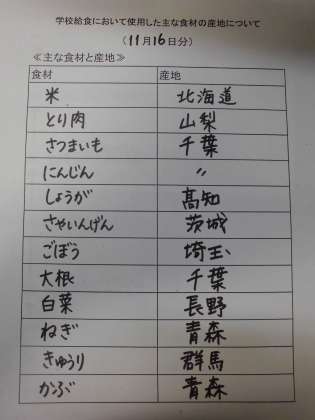 学校給食において使用した主な食材の産地について
(11月16日分)
≪主な食材と産地≫
食材 産地
米 北海道
とり肉 山梨
さつまいも 千葉
にんじん 〃
しょうが 高知
さやいんげん 茨城
ごぼう 埼玉
大根 千葉
白菜 長野
ねぎ 青森
きゅうり 群馬
かぶ 青森